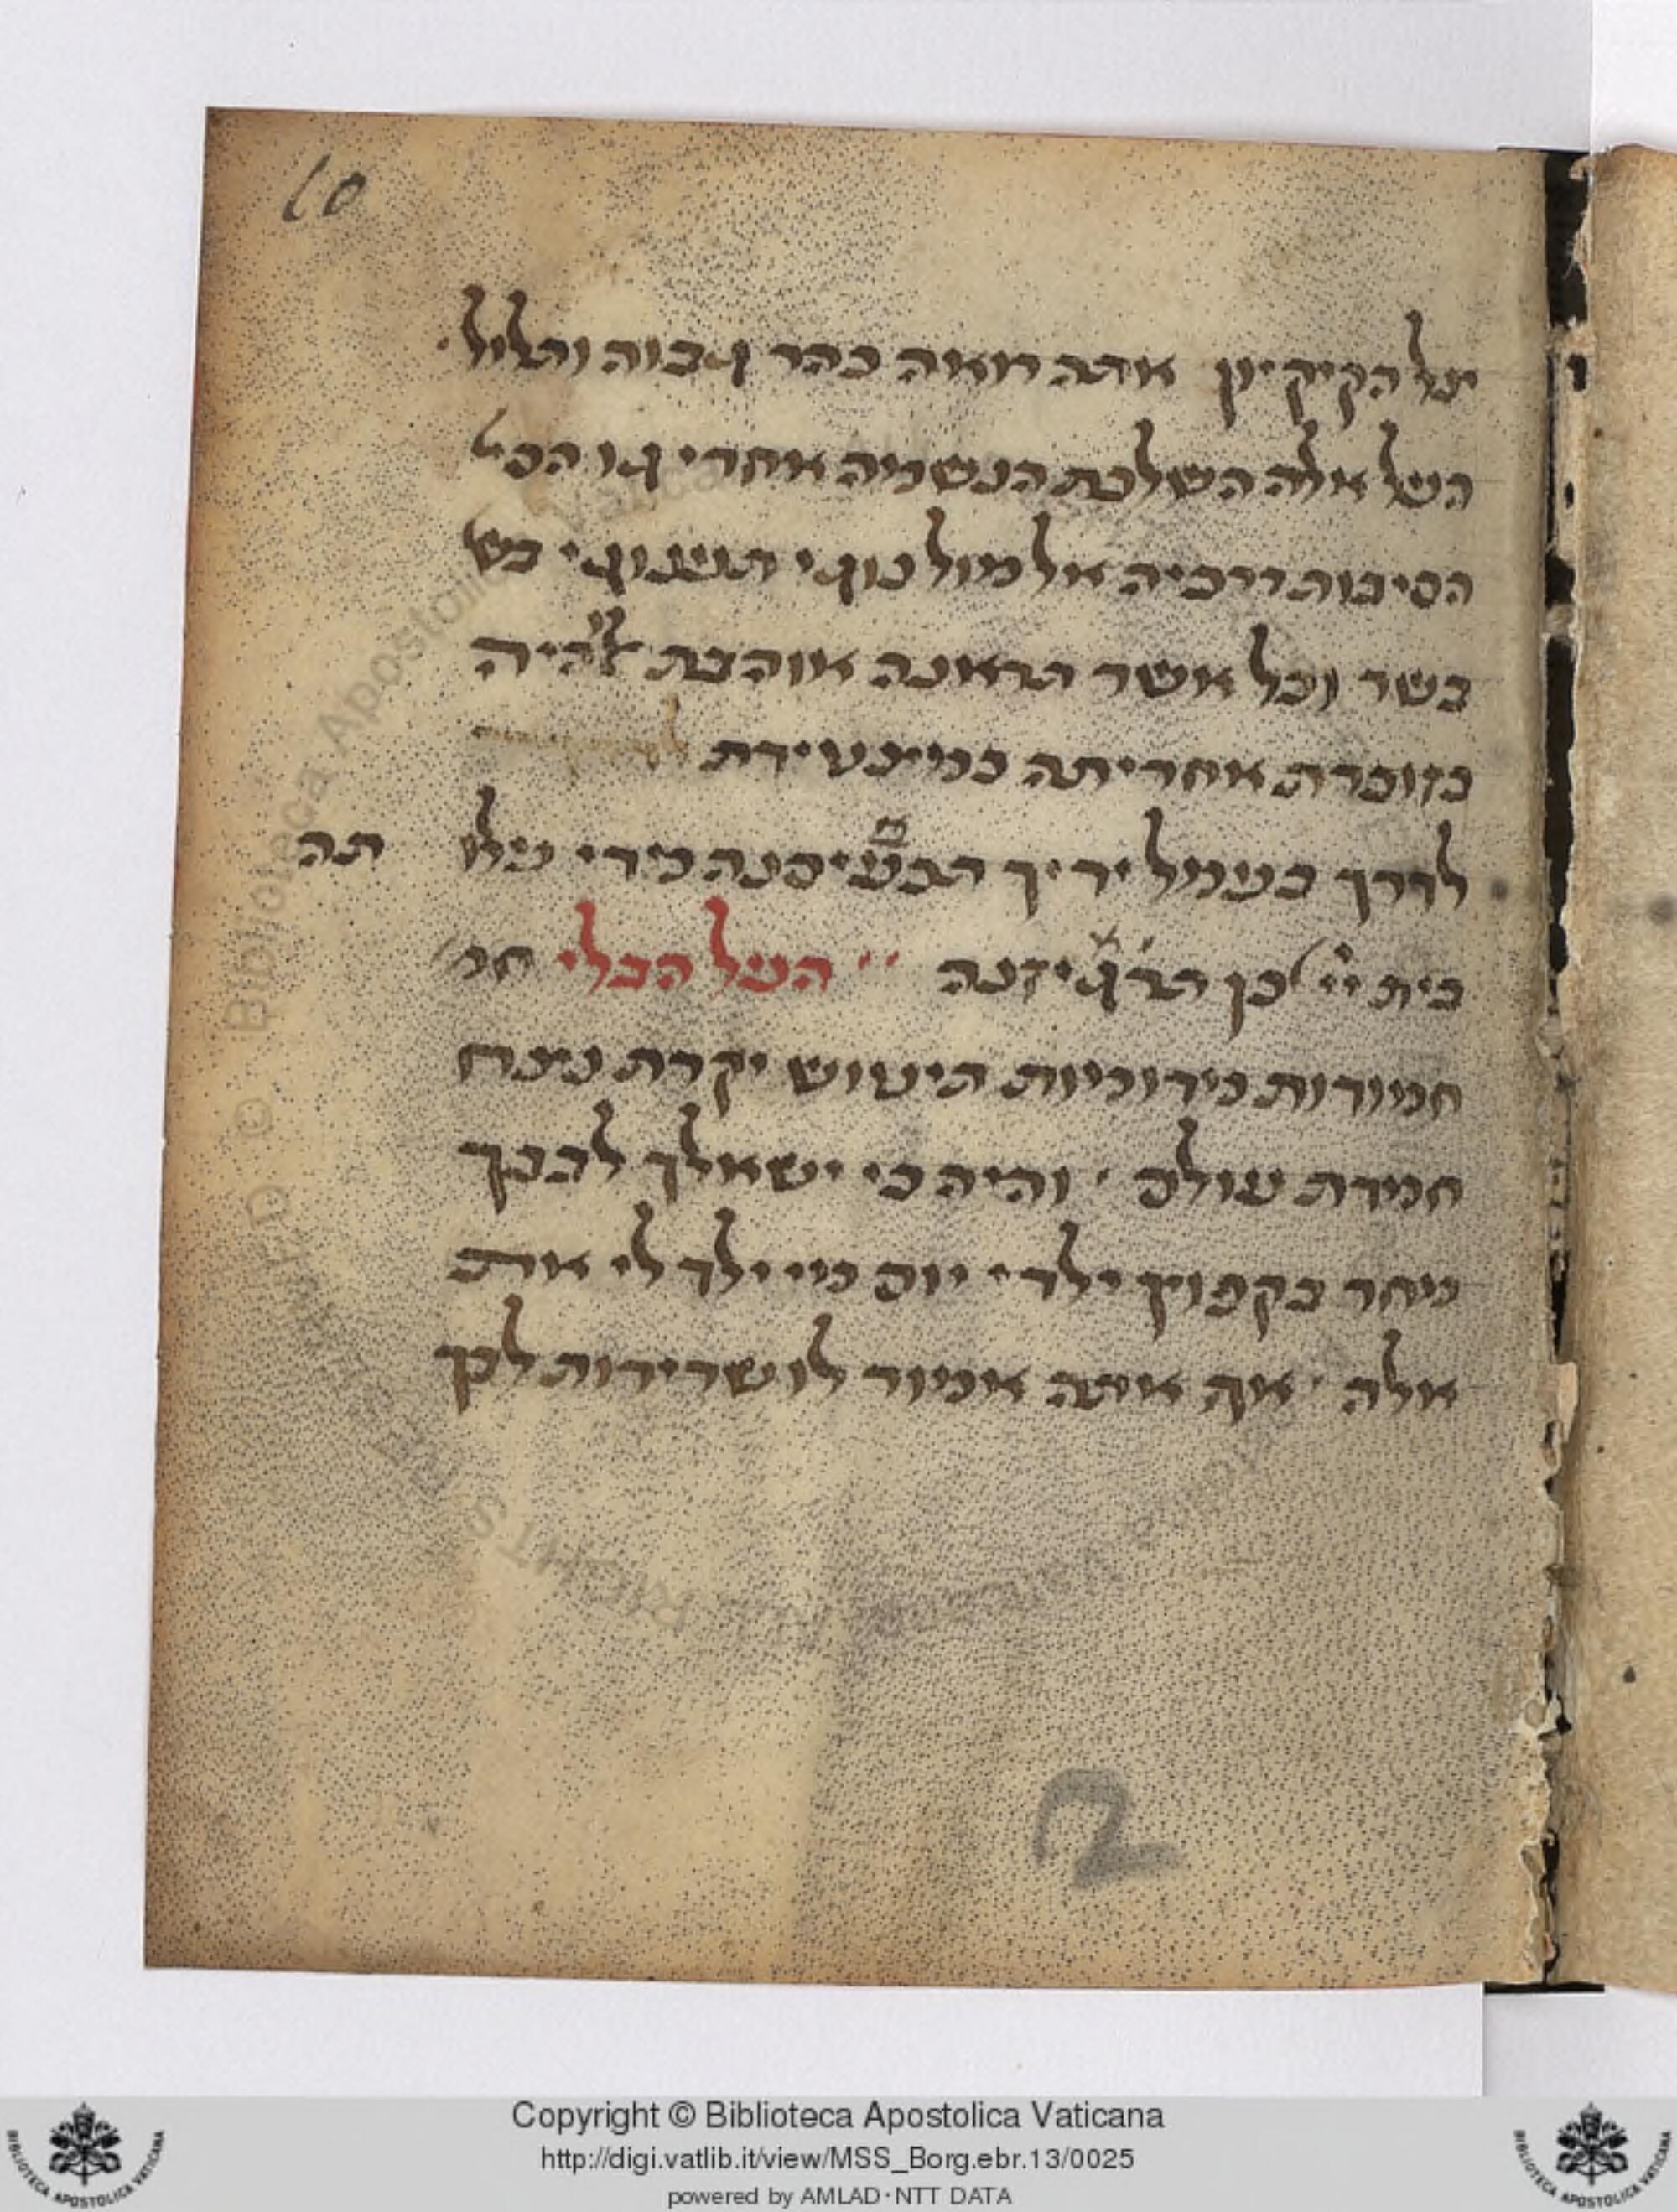 10
יצל הקיקיון אתה רואה כהר גבוה ותלול
העל אלה השלכת הנשמה אחרי גו הכל
הסיבות דרכיה אל מול נוגי תענוגי בש
בשר וכל אשר תראנה אוהבת להיה
כזוכרת אחריתה כמצעידת
לדרך בעמל ידיך תכעיסנה מדי עלו תה
בית ייי לכן תרגיזנה העל הכלי חמ
חמודות מידוניות תיטוש יקרת מצח
חמדת עולם והיה כי ישאלך לבבך
מחר בקפוץ ילדי יום מי ילד לי את
אלה אף אתה אמור לו שרידות לבך
2
Copyright © Biblioteca Apostolica Vaticana
http://digi.vatlib.it/view/MSS_Borg.ebr.13/0025
powered by AMLAD·NTT DATA